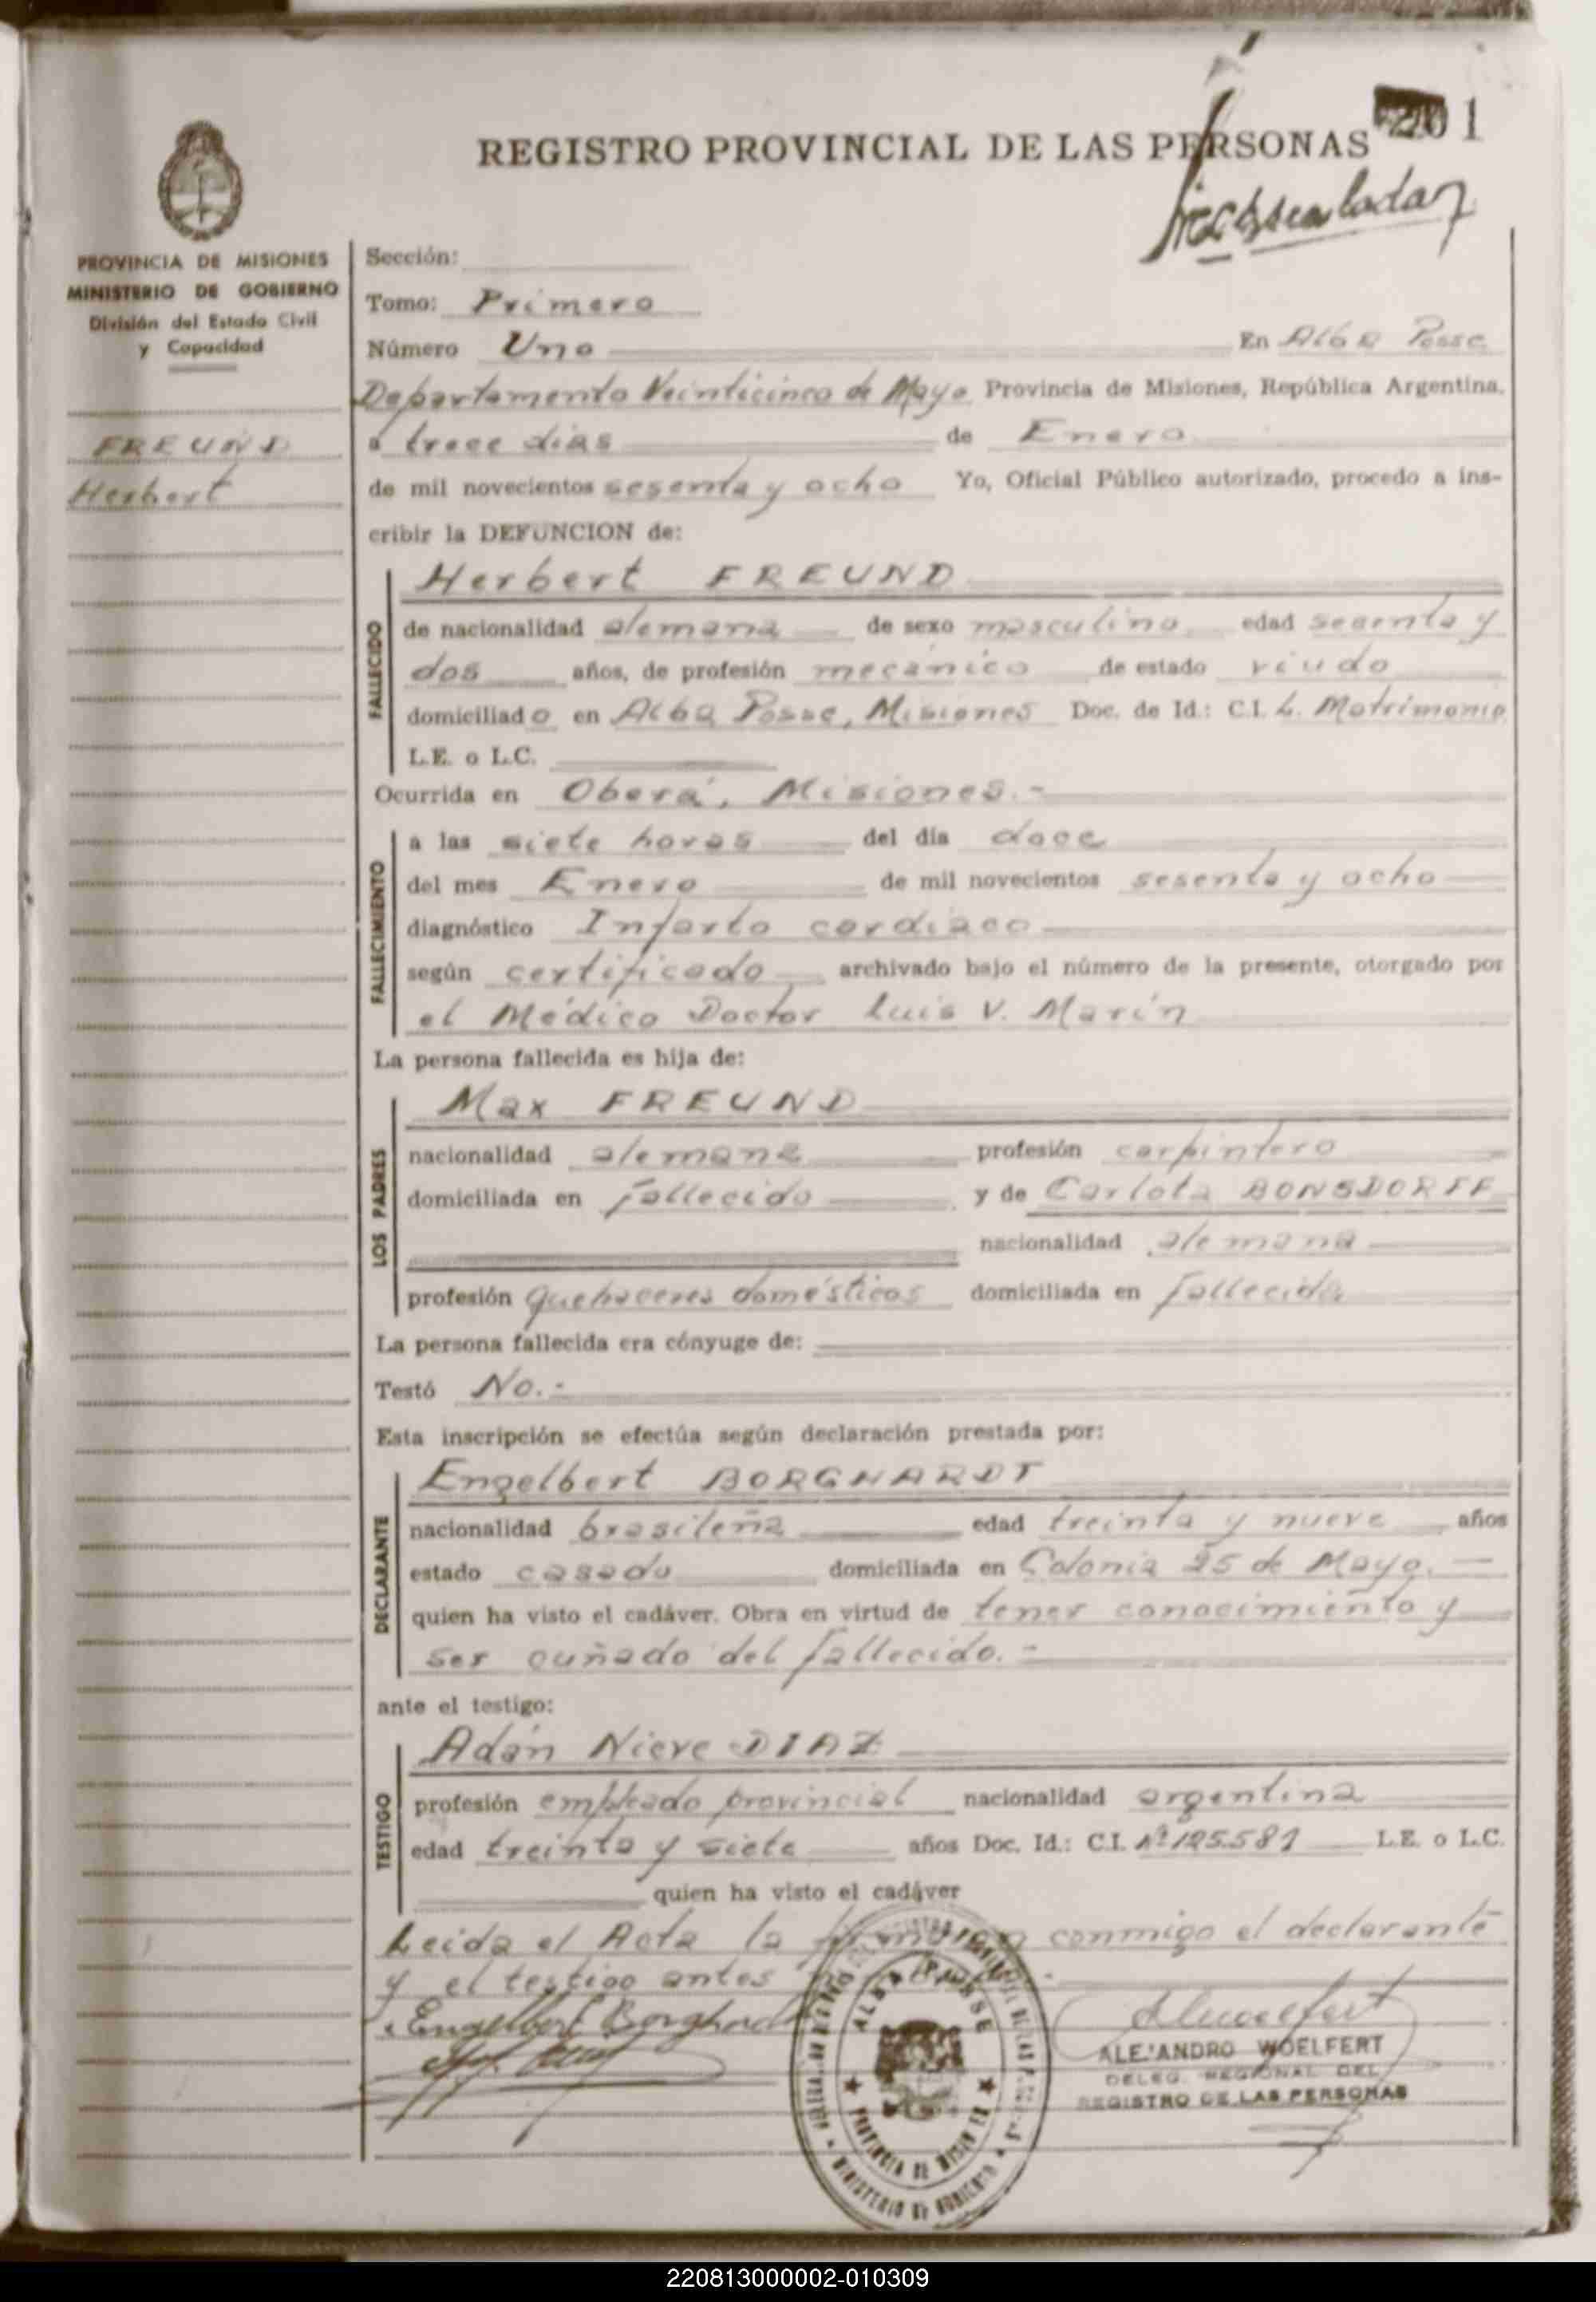 201
REGISTRO PROVINCIAL DE LAS PERSONAS
PROVINCIA DE MISIONES
MINISTERIO DE GOBIERNO
División del Estado Civil
y Capacidad
FREUND
Herbert
Sección:
Tomo: Primero
Número Uno En Alba Posse
Departamento Veinticinco de Mayo Provincia de Misiones, República Argentina,
a trece dias de Enero
de mil novecientos sesenta y ocho Yo, Oficial Público autorizado, procedo a ins-
cribir la DEFUNCION de:
Herbert FREUND
FALLECIDO
de nacionalidad alemana de sexo masculino edad sesenta y
dos años, de profesión mecánico de estado viudo
domiciliado en Alba Posse, Misiones Doc. de Id.: C.I. L. Matrimonio
L.E. o L.C.
Ocurrida en Oberá, Misiones.-
FALLECIMIENTO
a las siete horas del día doce
del mes Enero de mil novecientos sesenta y ocho
diagnóstico Infarto cardiaco
según certificado archivado bajo el número de la presente, otorgado por
el Médico Doctor Luis V. Marín
La persona fallecida es hija de:
LOS PADRES
Max FREUND
nacionalidad alemana profesión carpintero
domiciliada en fallecido y de Carlota BONSDORFF
nacionalidad alemana
profesión quehaceres domésticos domiciliada en fallecida
La persona fallecida era cónyuge de:
Testó No.-
Esta inscripción se efectúa según declaración prestada por:
DECLARANTE
Engelbert BORGHARDT
nacionalidad brasileña edad treinta y nueve años
estado casado domiciliada en Colonia 25 de Mayo.
quien ha visto el cadáver. Obra en virtud de tener conocimiento y
ser cuñado del fallecido.-
ante el testigo:
TESTIGO
Adán Nieve DIAZ
profesión empleado provincial nacionalidad argentina
edad treinta y siete años Doc. Id.: C.I. Nº 125.581 L.E. o L.C.
quien ha visto el cadáver
Leida el Acta la firman conmigo el declarante
y el testigo antes
Engelbert Borghardt
ALEJANDRO WOELFERT
DELEG. REGIONAL DEL
REGISTRO DE LAS PERSONAS
ALBA POSSE
PROVINCIA DE MISIONES
MINISTERIO DE GOBIERNO
220813000002-010309